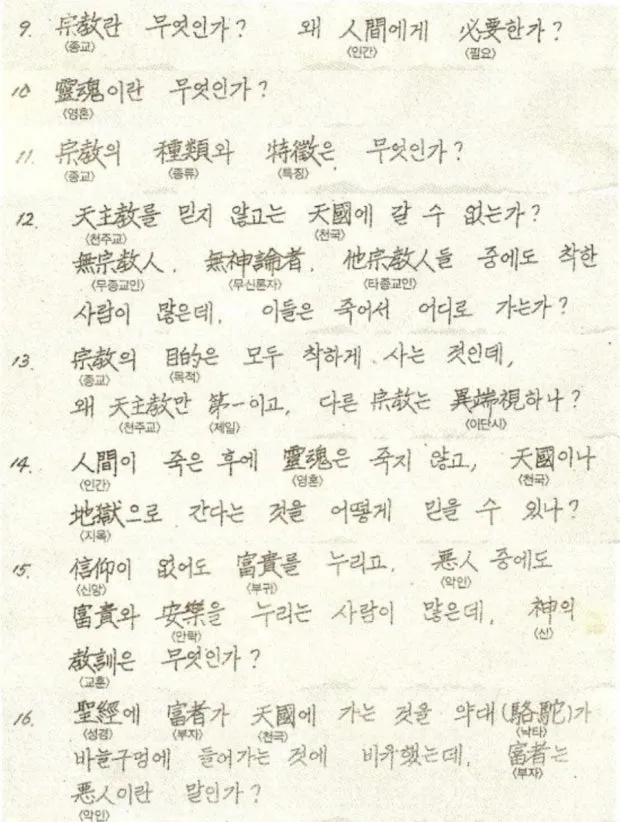 9. 宗敎란 무엇인가? 왜 人間에게 必要한가?
〈종교〉 〈인간〉 〈필요〉
10 靈魂이란 무엇인가?
〈영혼〉
11. 宗敎의 種類와 特徵은 무엇인가?
〈종교〉 〈종류〉 〈특징〉
12. 天主敎를 믿지 않고는 天國에 갈 수 없는가?
〈천주교〉 〈천국〉
無宗敎人, 無神論者, 他宗敎人들 중에도 착한
〈무종교인〉 〈무신론자〉 〈타종교인〉
사람이 많은데, 이들은 죽어서 어디로 가는가?
13. 宗敎의 目的은 모두 착하게 사는 것인데,
〈종교〉 〈목적〉
왜 天主敎만 第一이고, 다른 宗敎는 異端視하나?
〈천주교〉 〈제일〉 〈이단시〉
14. 人間이 죽은 후에 靈魂은 죽지 않고, 天國이나
〈인간〉 〈영혼〉 〈천국〉
地獄으로 간다는 것을 어떻게 믿을 수 있나?
〈지옥〉
15. 信仰이 없어도 富貴를 누리고, 惡人 중에도
〈신앙〉 〈부귀〉 〈악인〉
富貴와 安樂을 누리는 사람이 많은데, 神의
〈안락〉 〈신〉
敎訓은 무엇인가?
〈교훈〉
16. 聖經에 富者가 天國에 가는 것을 약대(駱駝)가
〈성경〉 〈부자〉 〈천국〉 〈낙타〉
바늘구멍에 들어가는 것에 비유했는데, 富者는
〈부자〉
惡人이란 말인가?
〈악인〉